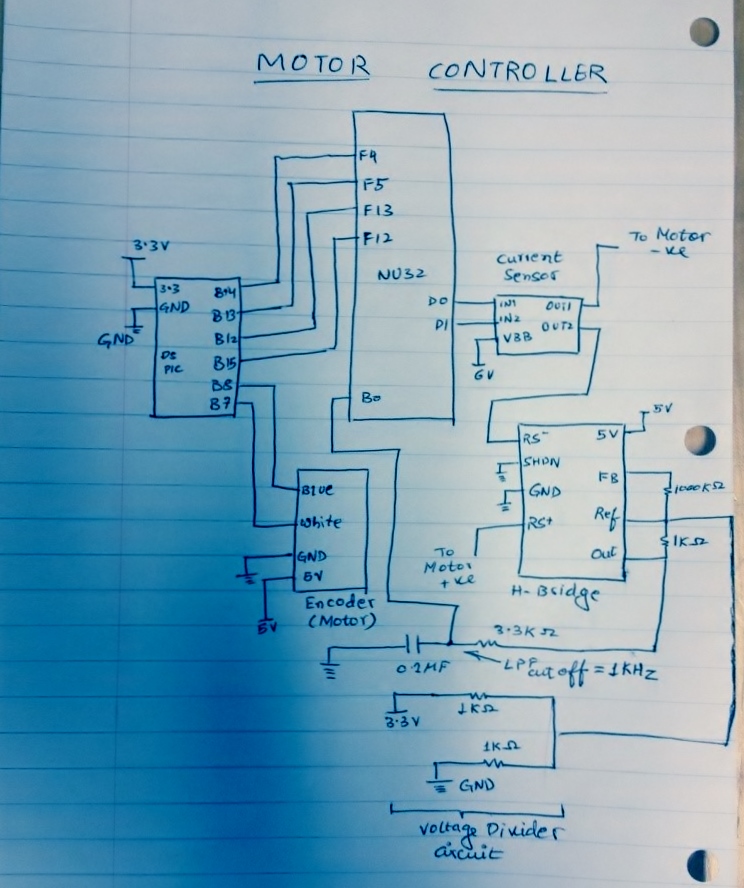 MOTOR CONTROLLER
F4
F5
F13
F12
NU32
D0
D1
B0
3.3V
3.3
GND
GND
DS
PIC
B14
B13
B12
B15
B8
B7
Current
Sensor
IN1
IN2
VBB
OUT1
OUT2
6V
To Motor
-ve
RS-
SHDN
GND
RS+
5V
FB
Ref
Out
5V
1000KΩ
1KΩ
To
Motor
+ve
H-Bridge
Blue
White
GND
5V
5V
Encoder
(Motor)
3.3KΩ
0.1MF
LPF
cut off = 1KHZ
3.3V
1KΩ
1KΩ
GND
Voltage Divider
circuit